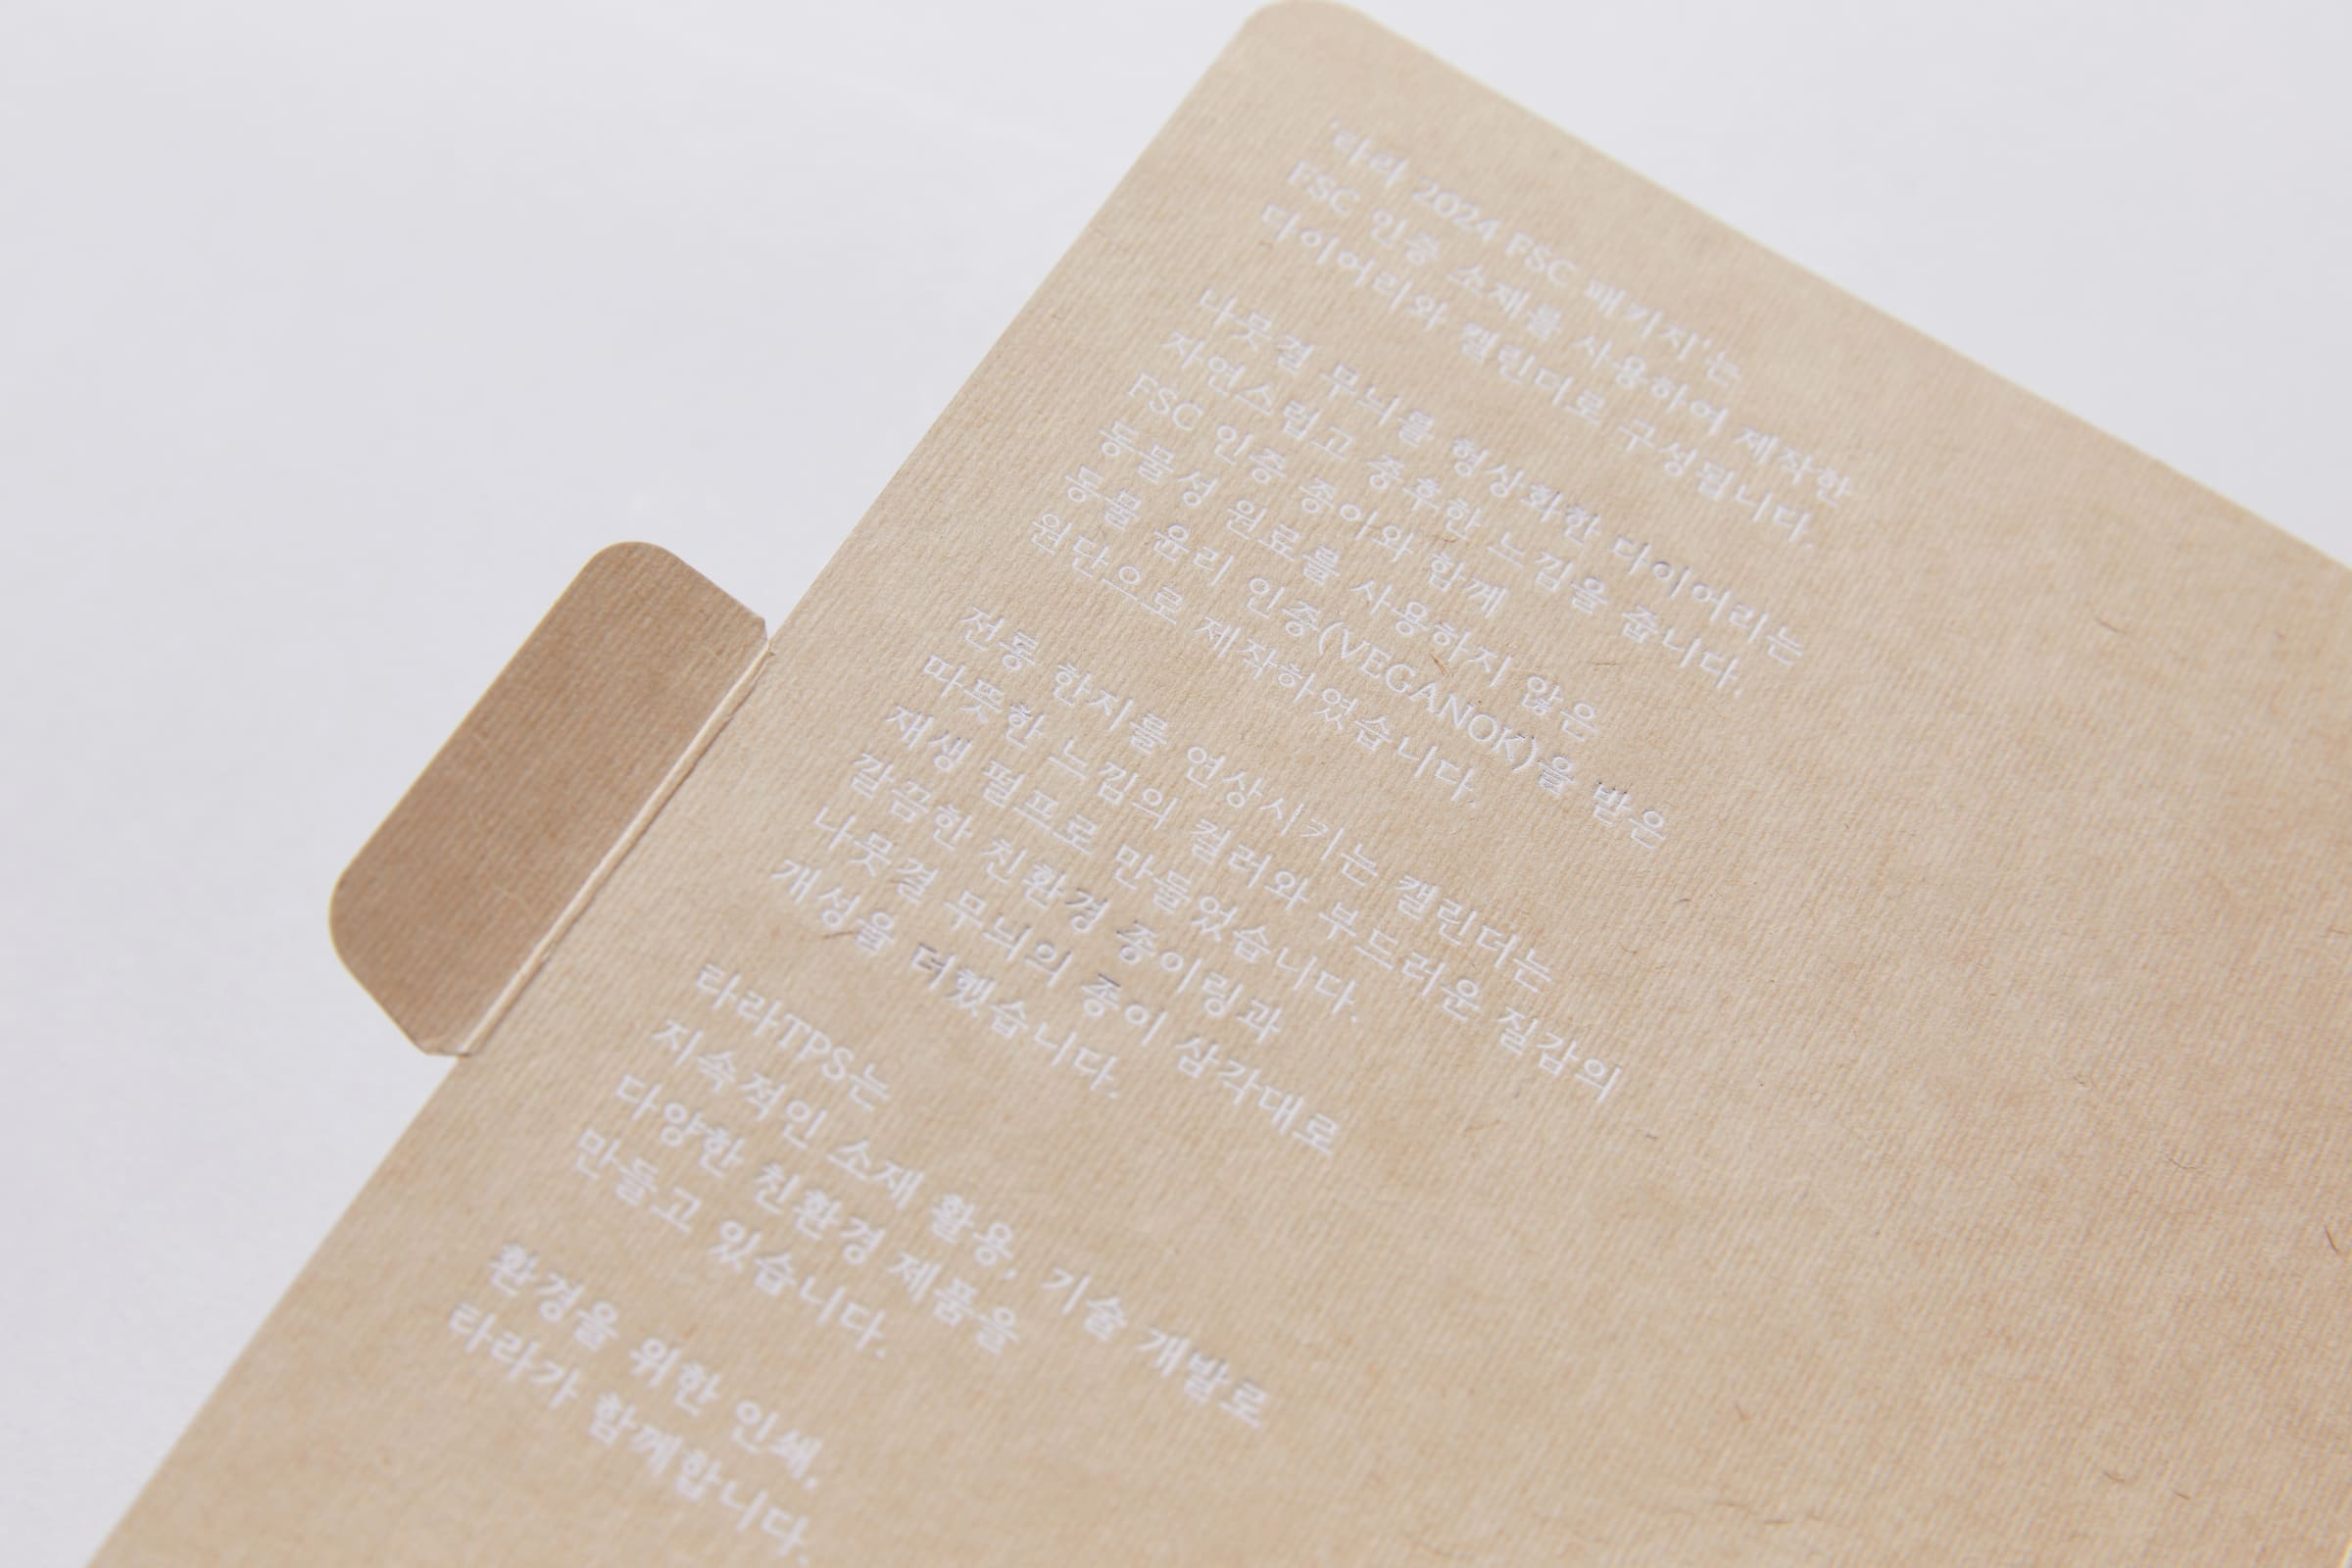 '타라 2024 FSC 패키지'는
FSC 인증 소재를 사용하여 제작한
다이어리와 캘린더로 구성됩니다.
나뭇결 무늬를 형상화한 다이어리는
자연스럽고 중후한 느낌을 줍니다.
FSC 인증 종이와 함께
동물성 원료를 사용하지 않은
동물 윤리 인증(VEGANOK)을 받은
원단으로 제작하였습니다.
전통 한지를 연상시키는 캘린더는
따뜻한 느낌의 컬러와 부드러운 질감의
재생 펄프로 만들었습니다.
깔끔한 친환경 종이링과
나뭇결 무늬의 종이 삼각대로
개성을 더했습니다.
타라TPS는
지속적인 소재 활용, 기술 개발로
다양한 친환경 제품을
만들고 있습니다.
환경을 위한 인쇄,
타라가 함께합니다.